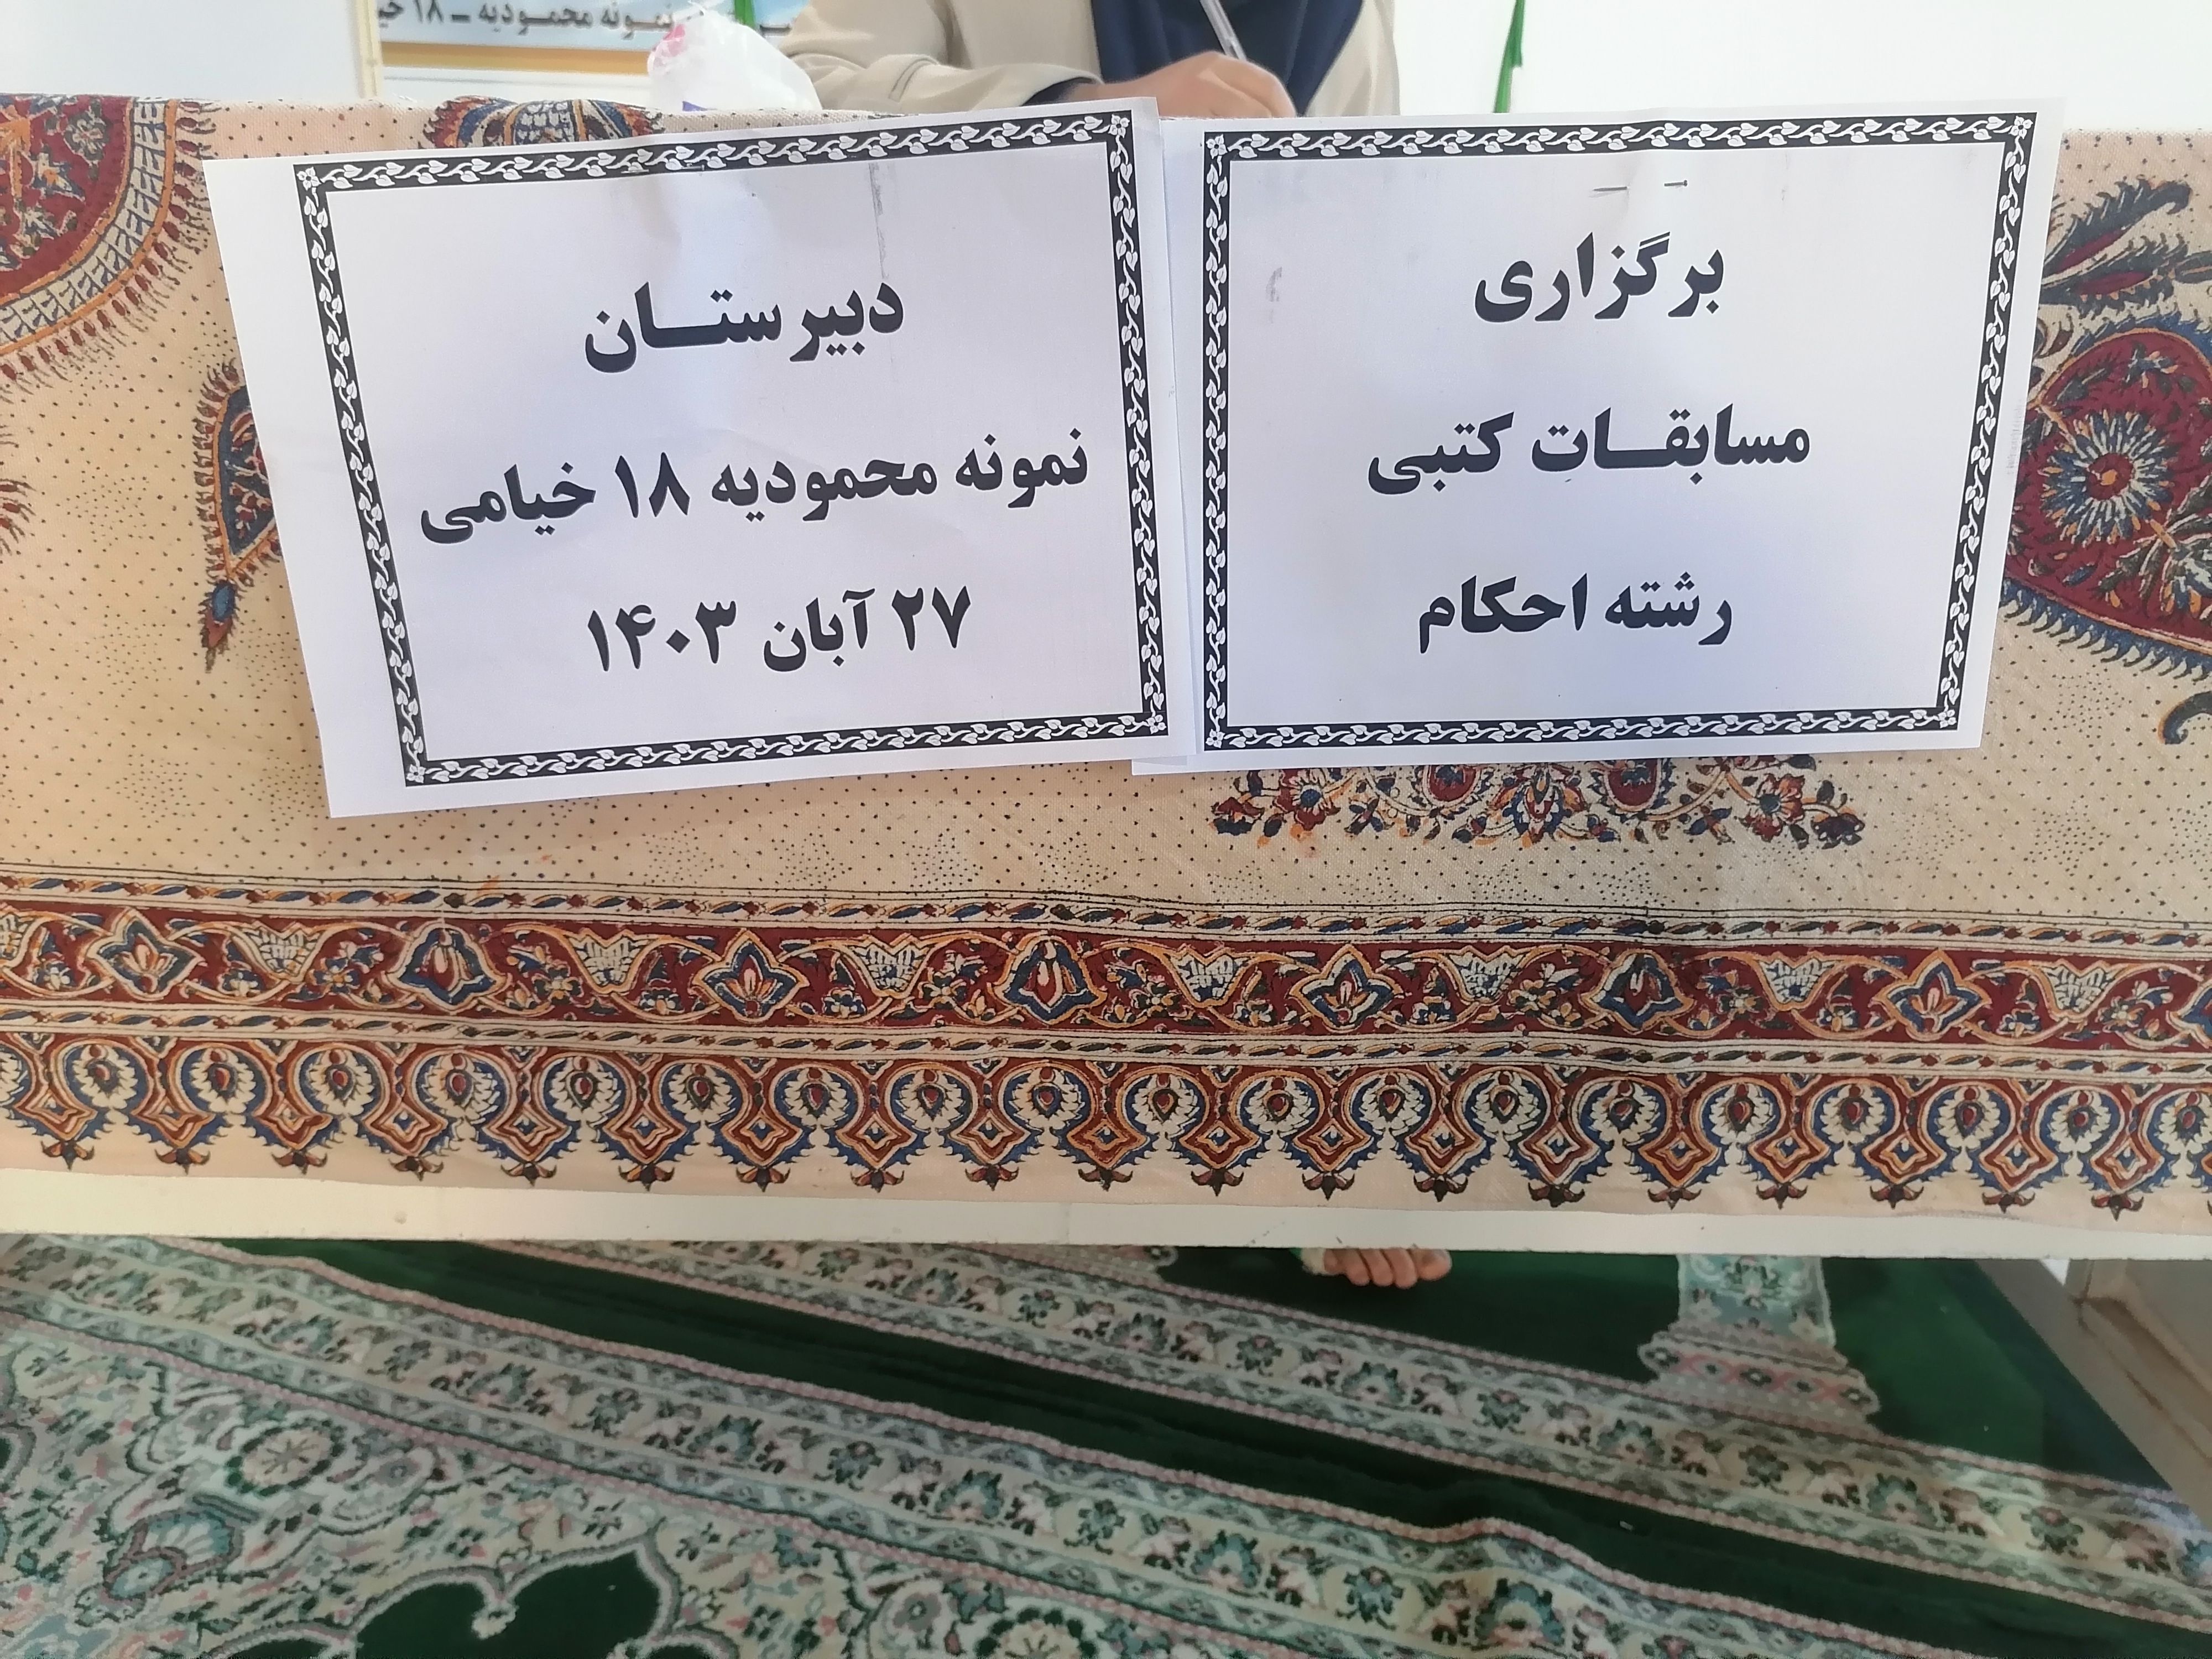 نمونه محمودیه ـ ۱۸
برگزاری
مسابقات کتبی
رشته احکام
دبیرستان
نمونه محمودیه ۱۸ خیامی
۲۷ آبان ۱۴۰۳